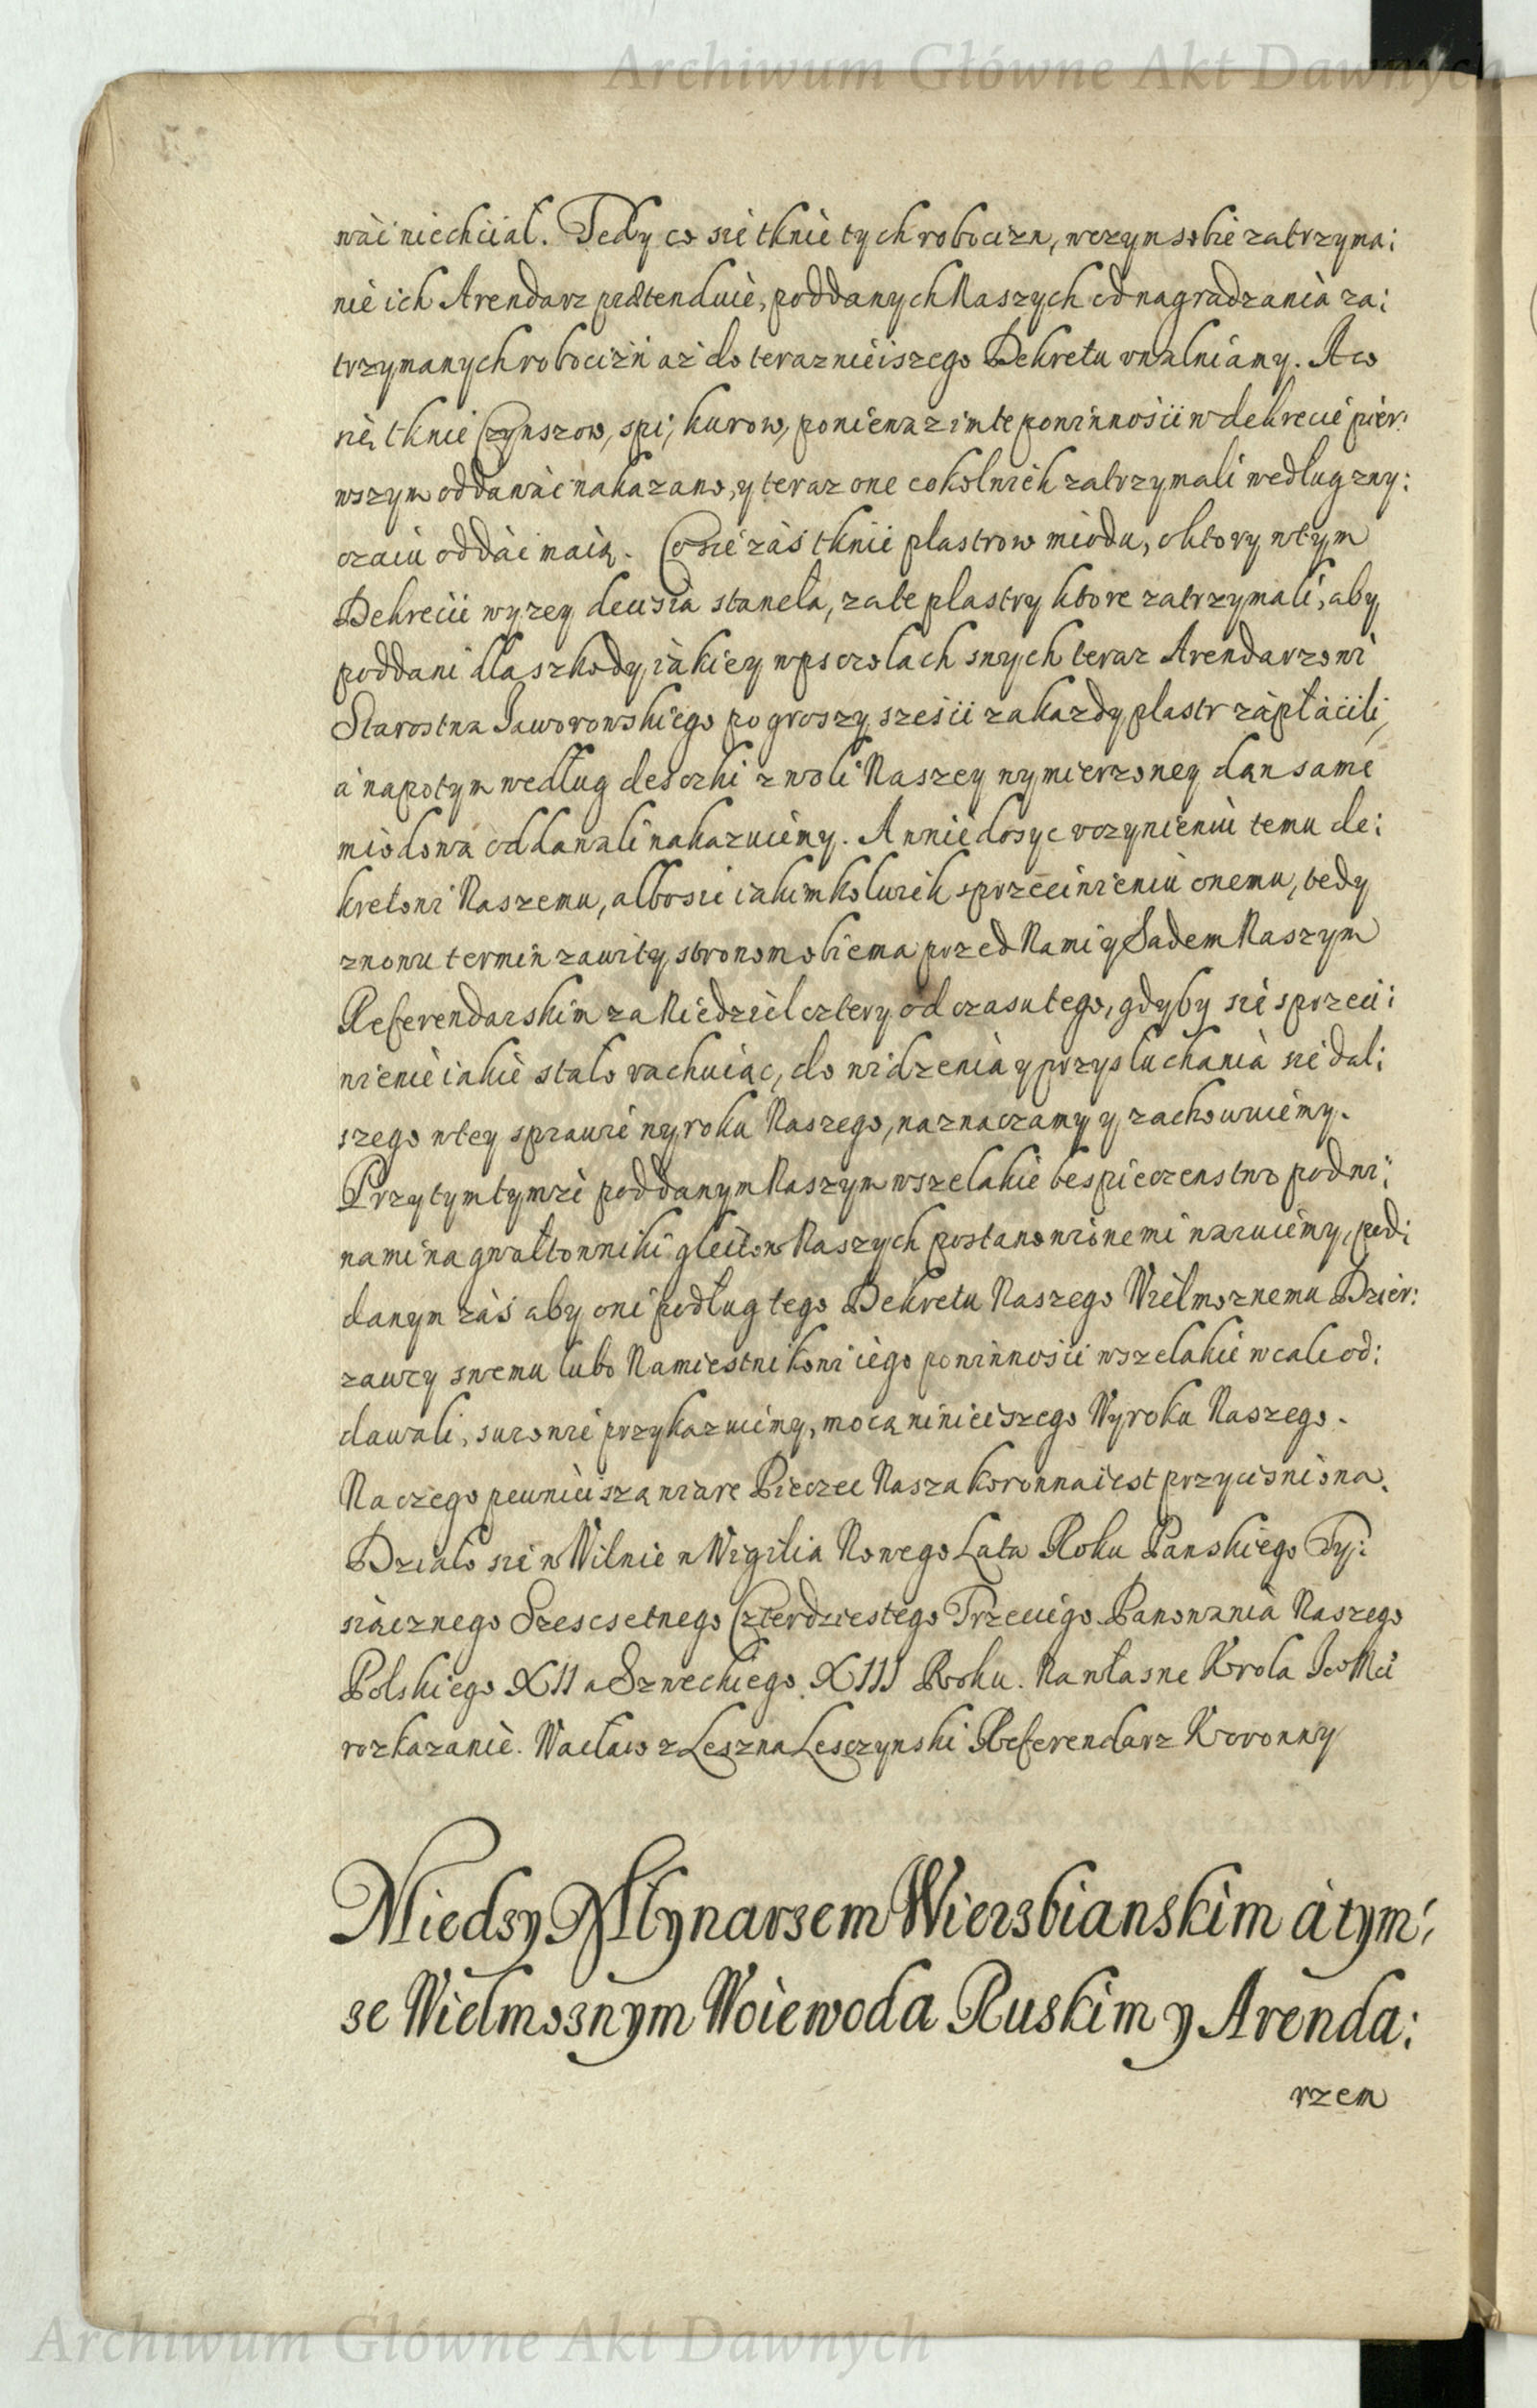 Archiwum Główne Akt Dawnych
wać niechciał. Tedy co sie tknie tych robocizn, wczym sobie zatrzyma:
nie ich Arendarz prætenduie, poddanych Naszych od nagradzania za:
trzymanych robocizn aż do teraznieiszego Dekretu vwalniamy. A co
się tknie Czynszow, spi, kurow, poniewaz im te powinności w dekrecie pier:
wszym oddawać nakazano, y teraz one cokolwiek zatrzymali według zwy:
czaiu oddać maią. Co sie zaś tknie plastrow miodu, o ktory w tym
Dekrecie wyzey decisia staneła, za te plastry ktore zatrzymali, aby
poddani dla szkody iakiey w psczołach swych teraz Arendarzowi
Starostwa Jaworowskiego po groszy sześci za kazdy plastr zapłacili,
a napotym według desczki z woli Naszey wymierzoney dan same
miodową oddawali nakazuiemy. A w niedosyc vczynieniu temu de:
kretowi Naszemu, albo sie iakimkolwiek sprzeciwieniu onemu, tedy
znowu termin zawity stronom obiema przed Nami y Sądem Naszym
Referendarskim za Niedziel cztery od czasu tego, gdyby sie sprzeci:
wienie iakie stało rachuiąc, do widzenia y przysłuchania sie dal:
szego w tey sprawie wyroku Naszego, naznaczamy y zachowuiemy.
Przytym tymze poddanym Naszym wszelakie bespieczenstwo pod wi:
nami na gwałtowniki gleitow Naszych postanowionemi waruiemy, pod:
danym zaś aby oni podług tego Dekretu Naszego Wielmoznemu Dzier:
zawcy swemu lubo Namiestnikowi iego powinności wszelakie wcale od:
dawali, surowie przykazuiemy, mocą ninieiszego Wyroku Naszego.
Na czego pewnieiszą wiare Pieczec Nasza koronna iest przycisniona.
Działo sie w Wilnie w Wigilia Nowego Lata Roku Panskiego Ty:
siącznego Szescsetnego Czterdziestego Trzeciego Panowania Naszego
Polskiego XII a Szweckiego XIII Roku. Na własne Krola Jeo Mci
rozkazanie. Wacław z Leszna Lesczynski Referendarz Koronny
Miedsy Młynarsem Wiersbianskim a tym:
se Wielmosnym Woiewoda Ruskim y Arenda:
rzem
Archiwum Główne Akt Dawnych